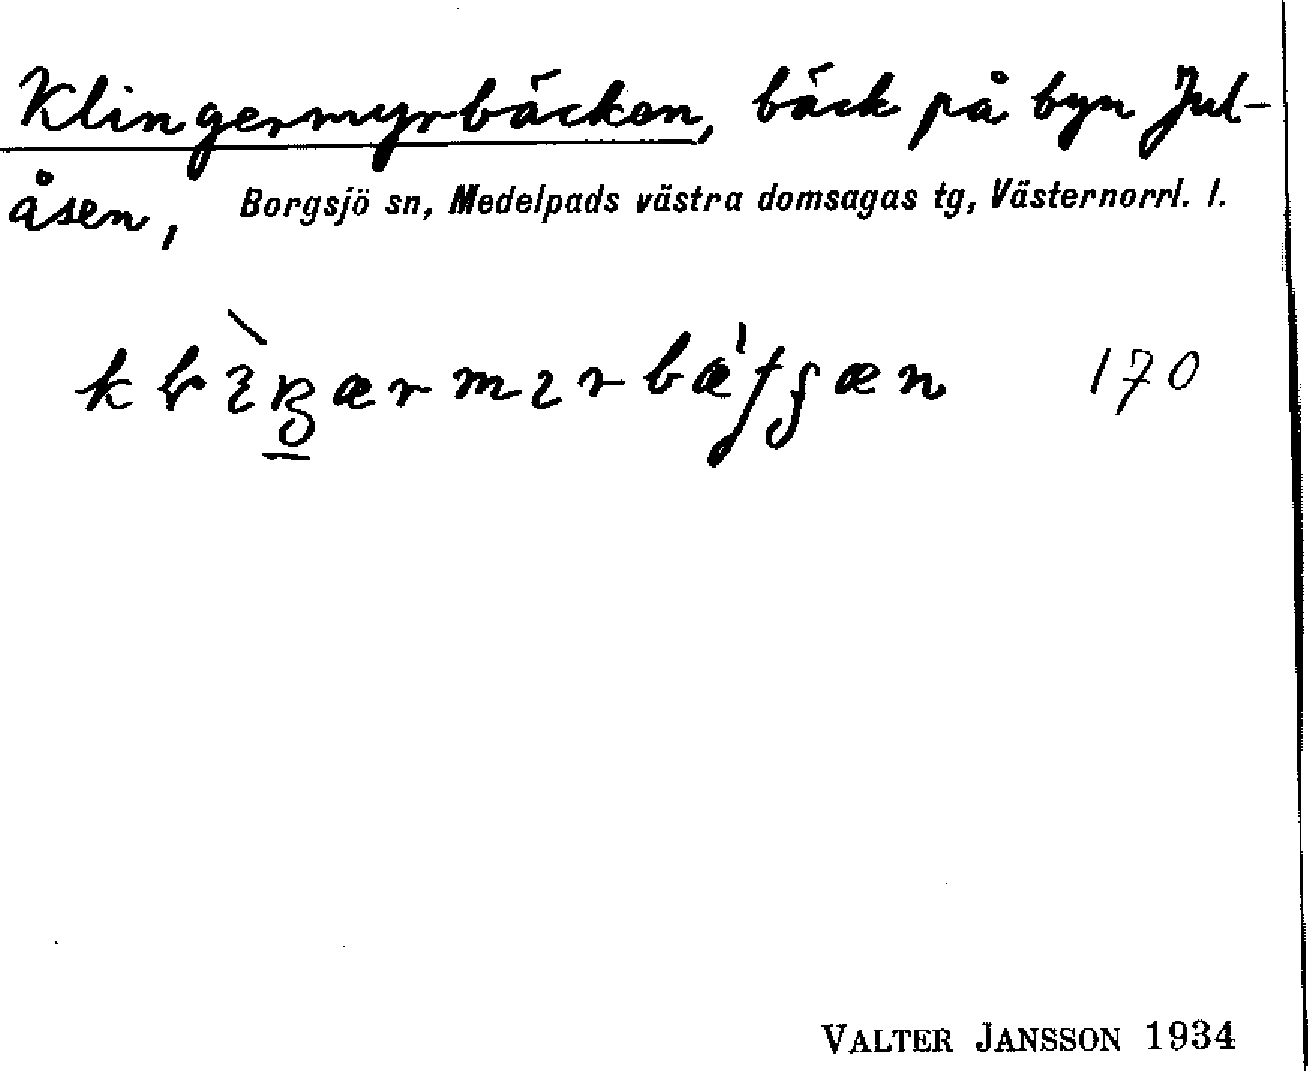 Klingermyrbäcken, bäck på byn Jul-
åsen, Borgsjö sn, Medelpads västra domsagas tg, Västernorrl. l.
170
VALTER JANSSON 1934